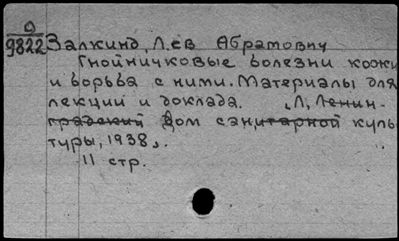 О
9822 Залкинд, Лев Абрамович
Гнойничковые болезни кожи
и борьба с ними. Материалы для
лекции и доклада. Л, Ленин-
градский Дом санитарной куль-
туры, 1938,.
11 стр.